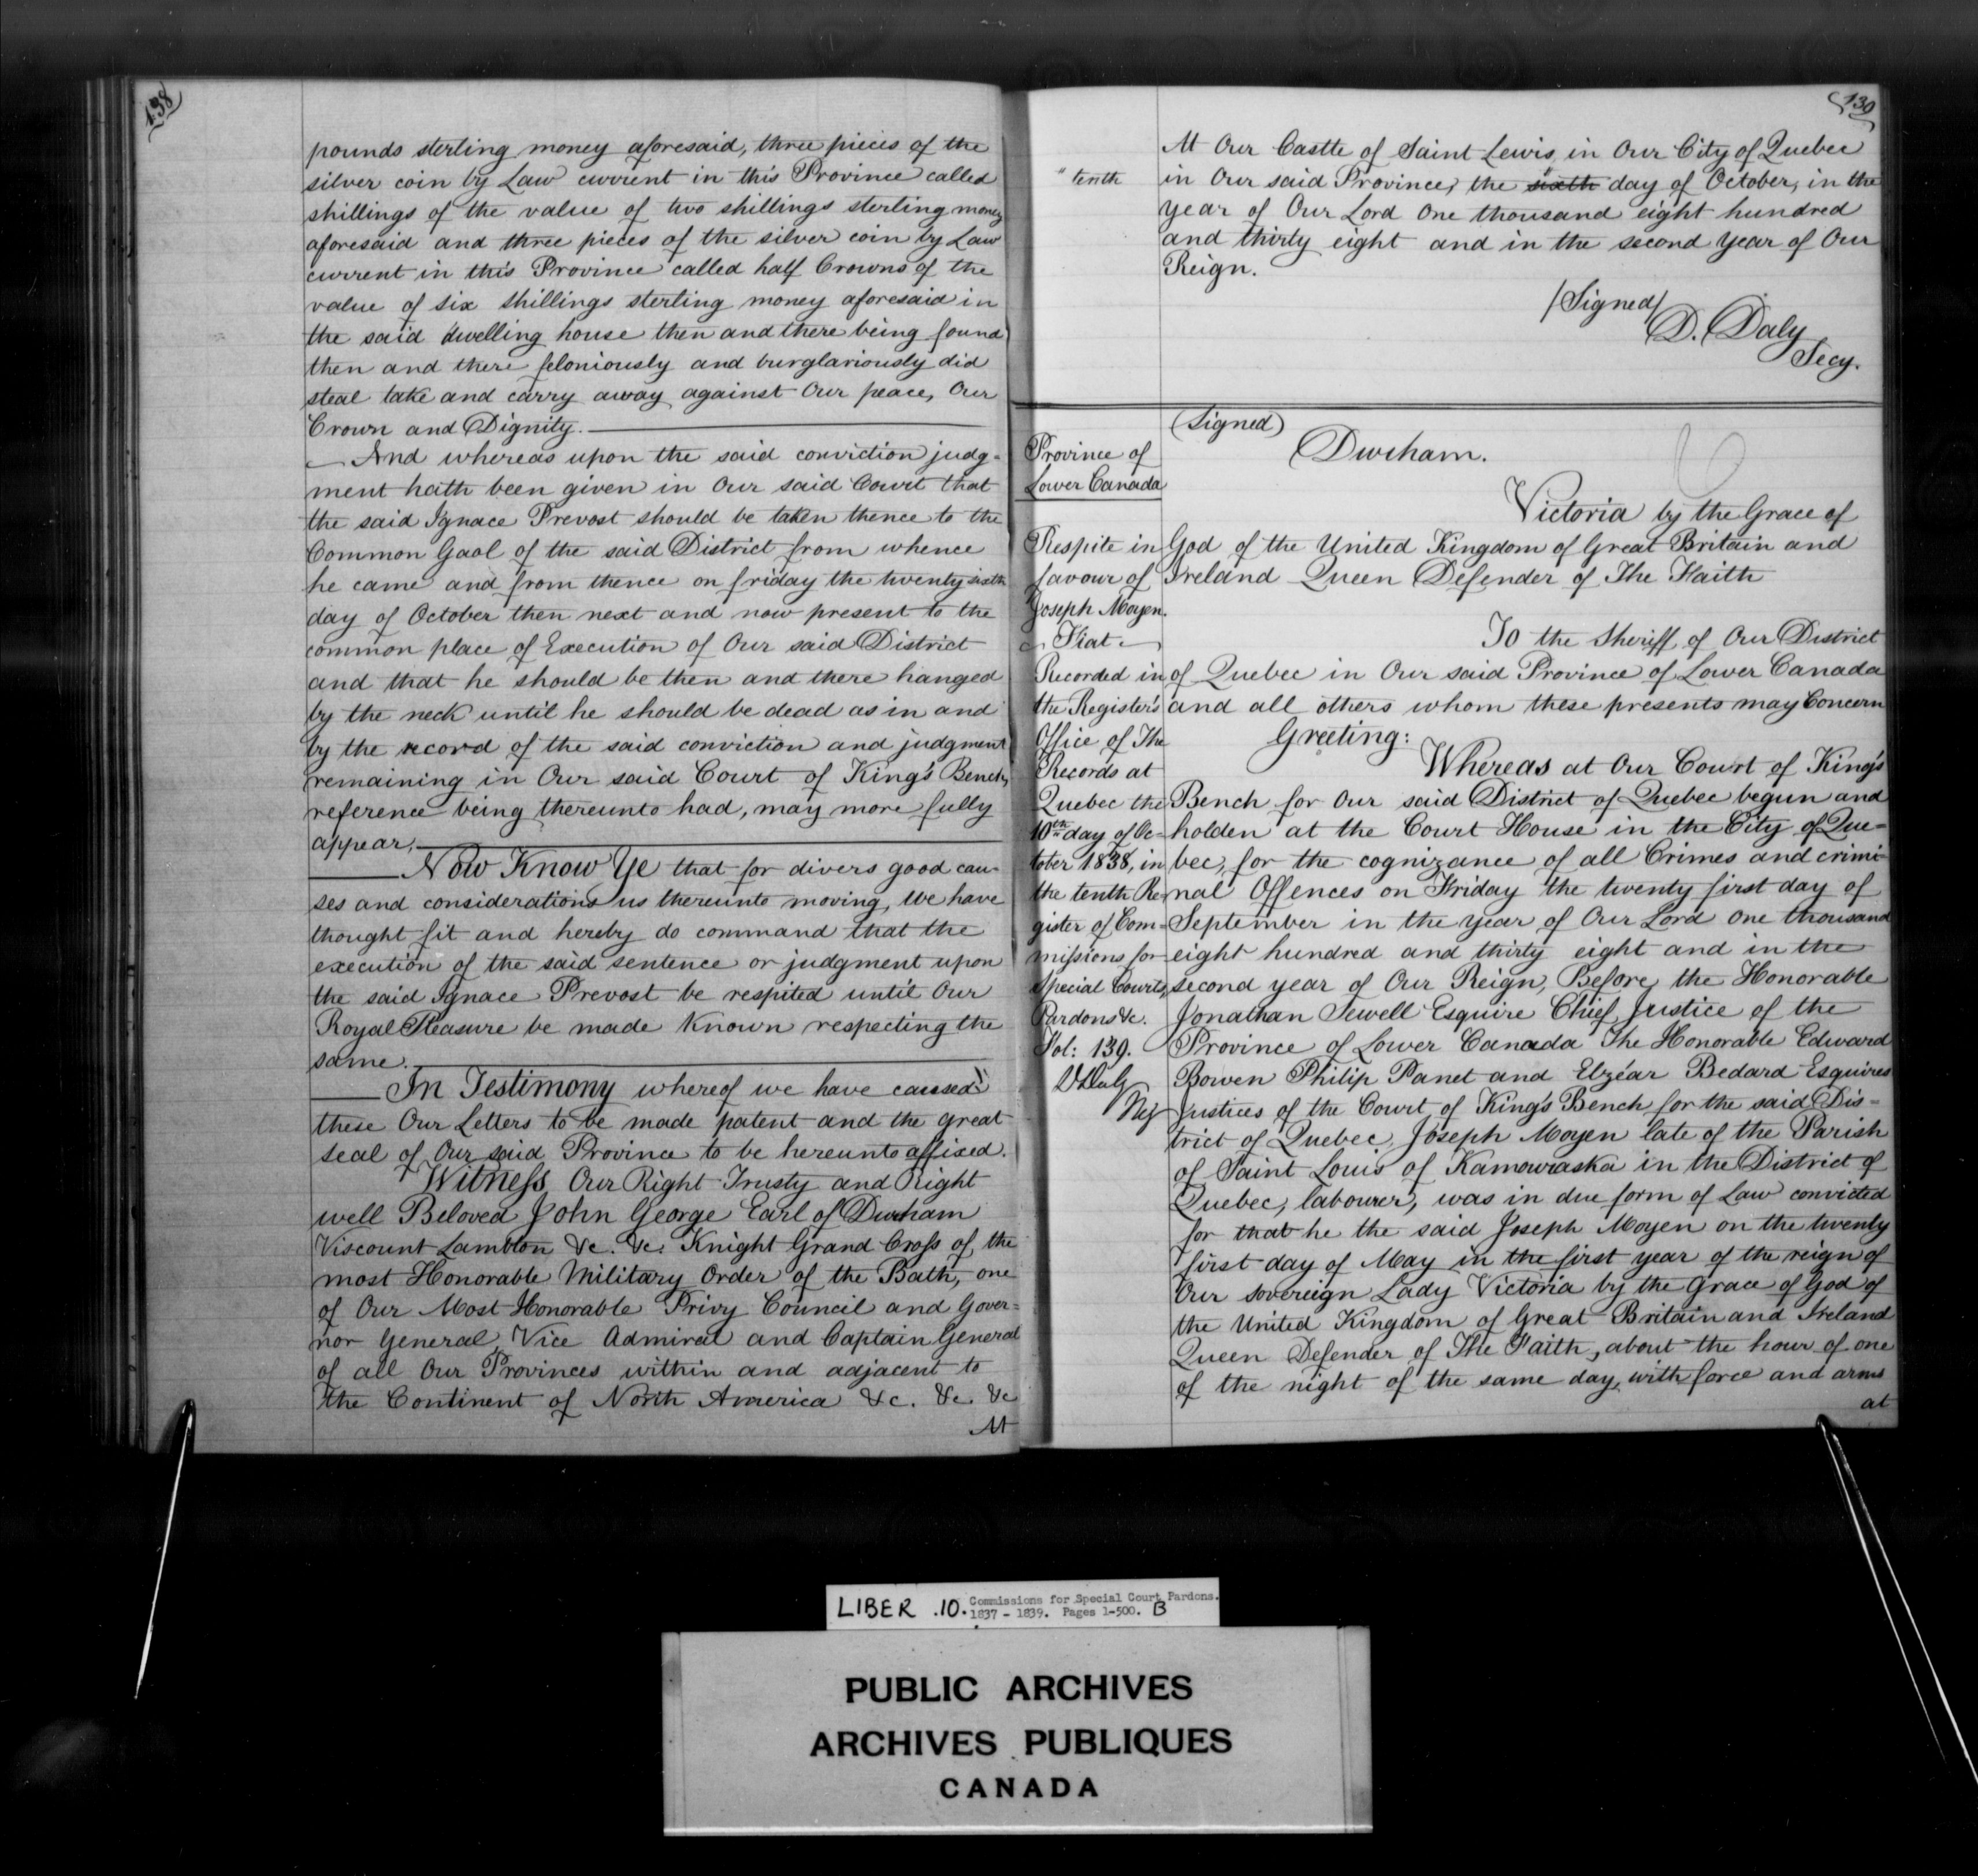 138
pounds sterling money aforesaid, three pieces of the
silver coin by Law current in this Province called
shillings of the value of two shillings sterling money
aforesaid and three pieces of the silver coin by Law
current in this Province called half Crowns of the
value of six shillings sterling money aforesaid in
the said dwelling house then and there being found
then and there feloniously and burglariously did
steal take and carry away against Our peace, Our
Crown and Dignity.
And whereas upon the said conviction judg=
ment hath been given in Our said Court that
the said Ignace Prevost should be taken thence to the
Common Gaol of the said District from whence
he came and from thence on friday the twenty sixth
day of October then next and now present to the
common place of Execution of Our said District
and that he should be then and there hanged
by the neck until he should be dead as in and
by the record of the said conviction and judgment
remaining in Our said Court of King's Bench,
reference being thereunto had, may more fully
appear.
Now Know Ye that for divers good cau-
ses and considerations us thereunto moving, We have
thought fit and hereby do command that the
execution of the said sentence or judgment upon
the said Ignace Prevost be respited until Our
Royal Pleasure be made known respecting the
same.
In Testimony whereof we have caused
these Our Letters to be made patent and the great
seal of Our said Province to be hereunto affixed.
Witness Our Right Trusty and Right
well Beloved John George Earl of Durham
Viscount Lambton &c. &c. Knight Grand Cross of the
most Honorable Military Order of the Bath, one
of Our Most Honorable Privy Council and Gover=
nor General, Vice Admiral and Captain General
of all Our Provinces within and adjacent to
the Continent of North America &c. &c. &c
At
139
At Our Castle of Saint Lewis, in Our City of Quebec
" tenth
in Our said Province, the sixth day of October, in the
year of Our Lord One thousand eight hundred
and thirty eight and in the second year of Our
Reign.
(Signed)
D. Daly
Secy.
(Signed)
Durham.
Province of
Lower Canada
Respite in
favour of
Joseph Moyen.
Fiat.
Recorded in
the Register's
Office of The
Records at
Quebec the
10th day of Oc-
tober 1838, in
the tenth Re-
gister of Com-
missions for
Special Courts,
Pardons &c.
Fol: 139.
D. Daly
Reg
Victoria by the Grace of
God of the United Kingdom of Great Britain and
Ireland Queen Defender of The Faith
To the Sheriff of Our District
of Quebec in Our said Province of Lower Canada
and all others whom these presents may Concern
Greeting:
Whereas at Our Court of King's
Bench for Our said District of Quebec begun and
holden at the Court House in the City of Que=
bec, for the cognizance of all Crimes and crimi-
nal Offences on Friday the twenty first day of
September in the year of Our Lord One thousand
eight hundred and thirty eight and in the
second year of Our Reign, Before the Honorable
Jonathan Sewell Esquire Chief Justice of the
Province of Lower Canada The Honorable Edward
Bowen Philip Panet and Elzéar Bedard Esquires
Justices of the Court of King's Bench for the said Dis=
trict of Quebec, Joseph Moyen late of the Parish
of Saint Louis of Kamouraska in the District of
Quebec, labourer, was in due form of Law convicted
for that he the said Joseph Moyen on the twenty
first day of May in the first year of the reign of
Our sovereign Lady Victoria by the Grace of God of
the United Kingdom of Great Britain and Ireland
Queen Defender of The Faith, about the hour of one
of the night of the same day, with force and arms
at
LIBER .10. Commissions for Special Court Pardons.
1837 - 1839. Pages 1-500. B
PUBLIC ARCHIVES
ARCHIVES PUBLIQUES
CANADA